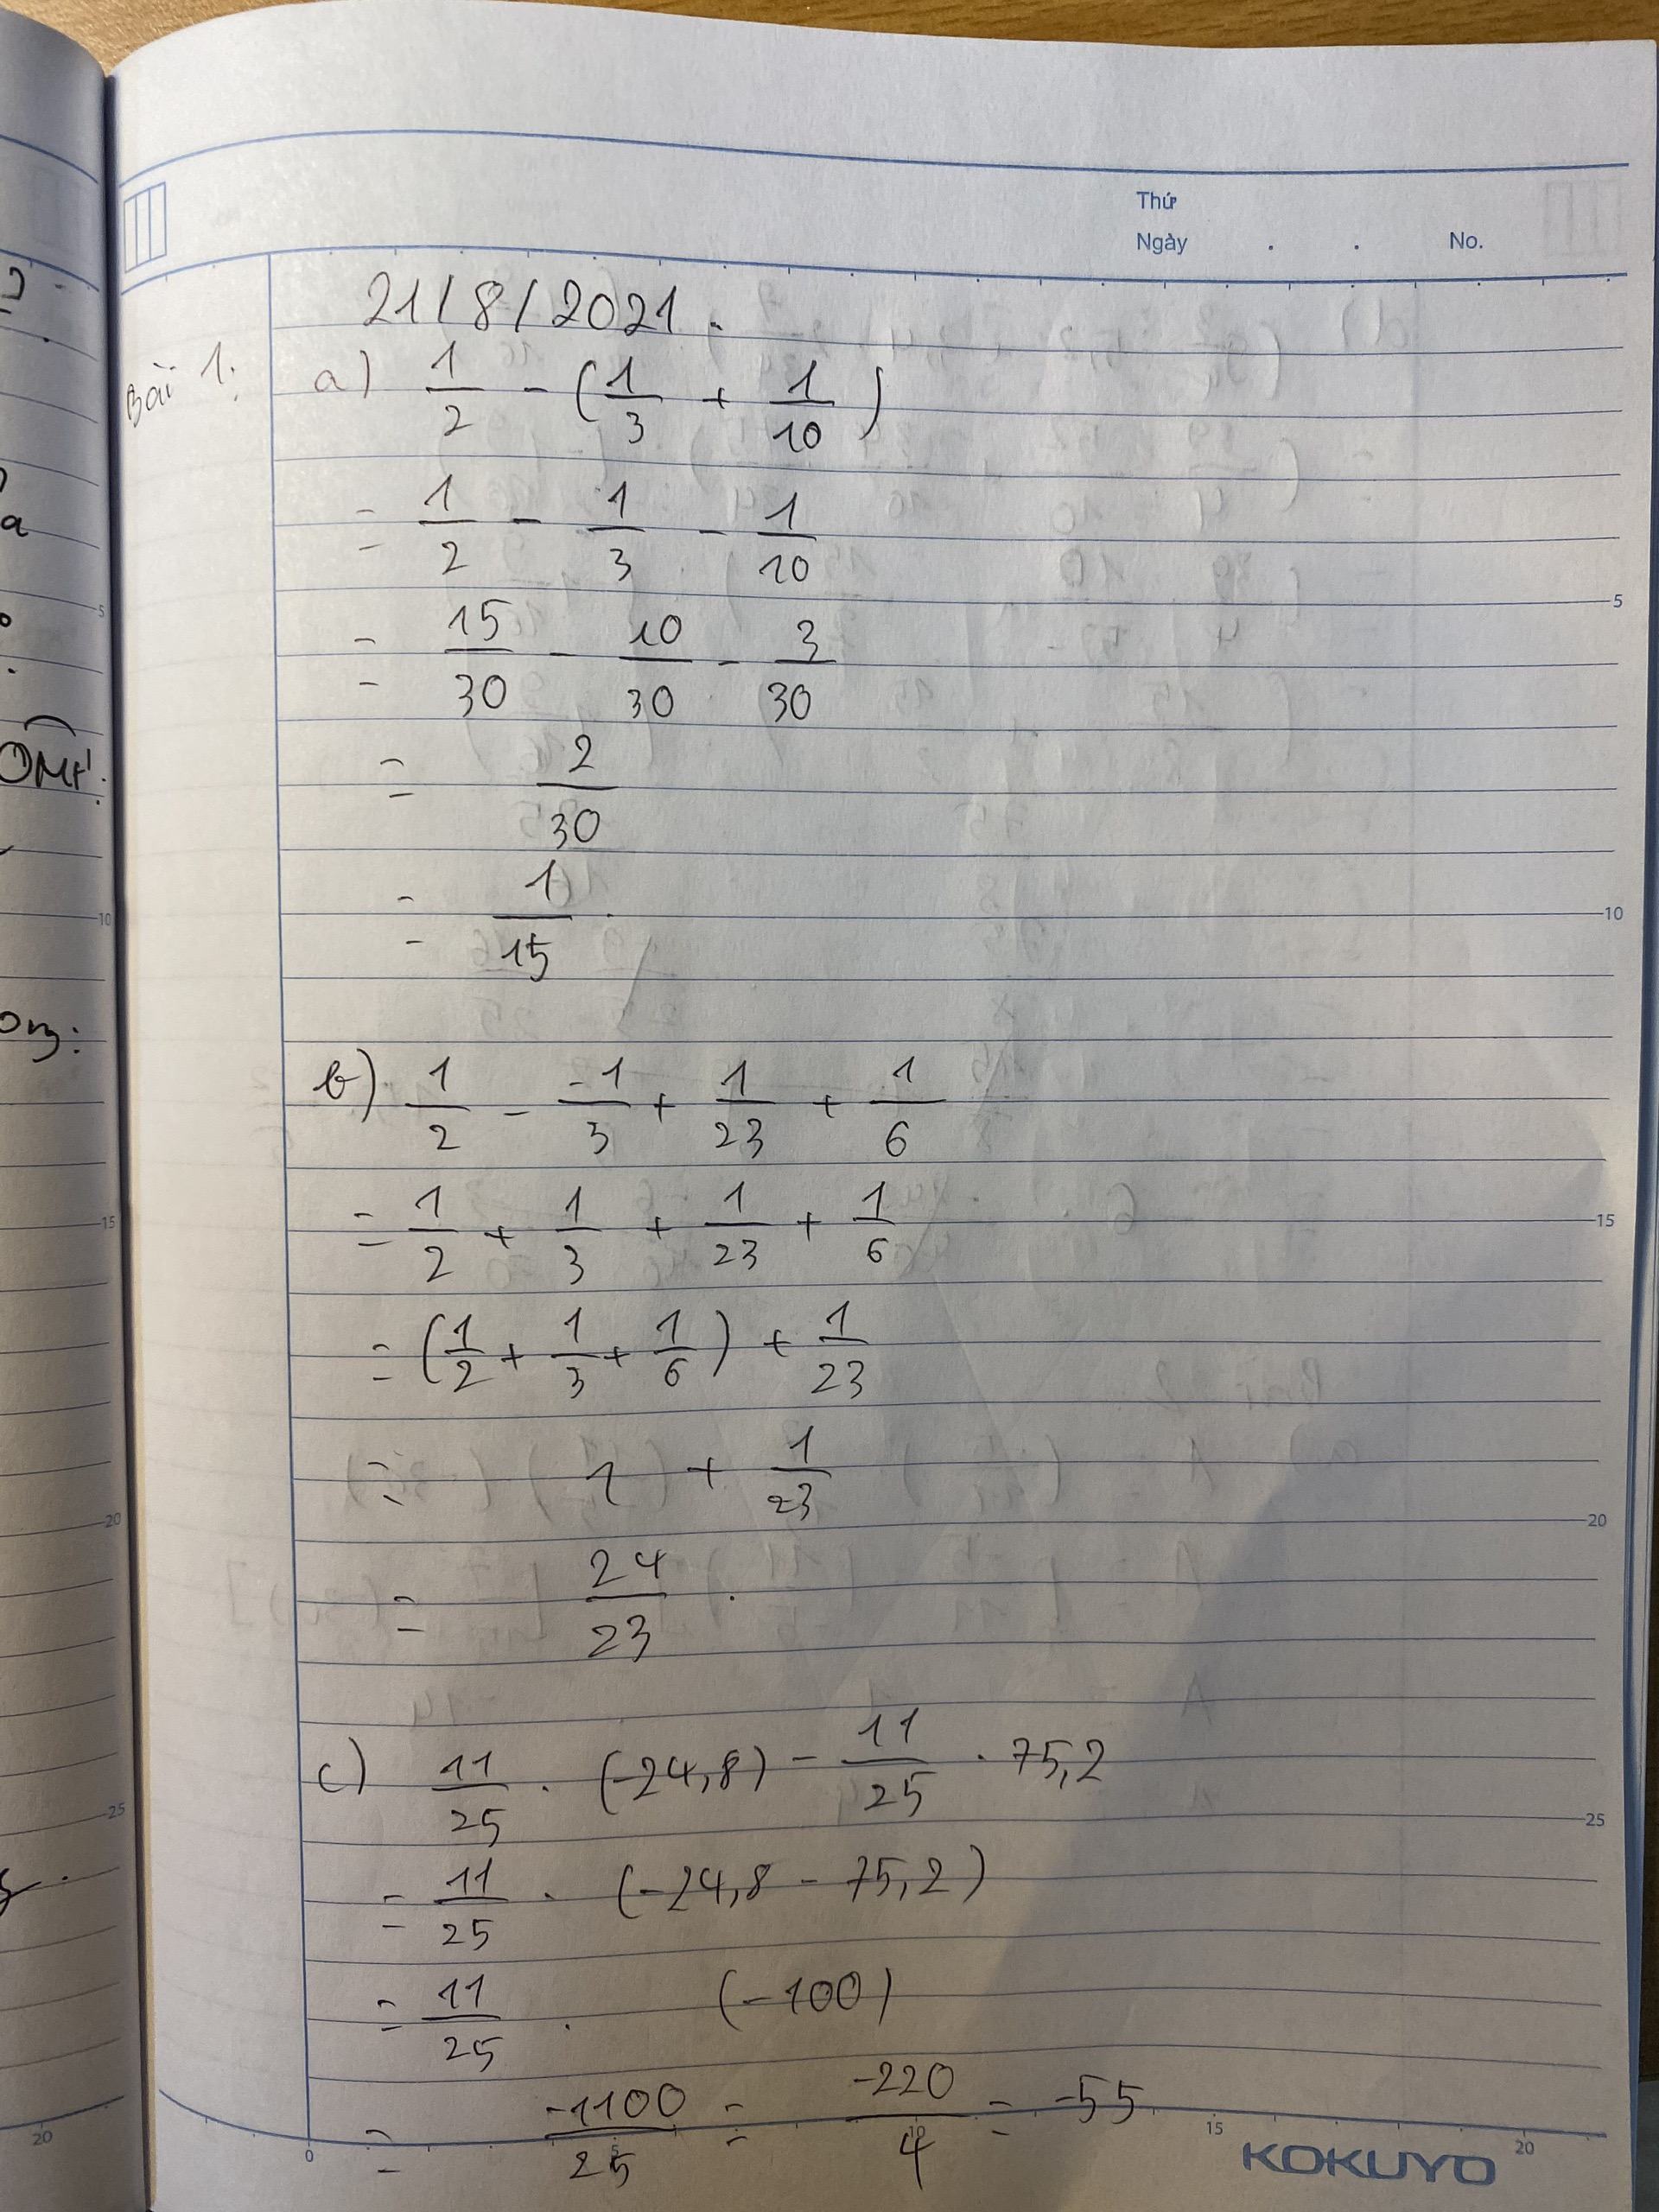 Thứ
Ngày . . No.
21/8/2021.
Bài 1: a) 1/2 - (1/3 + 1/10)
= 1/2 - 1/3 - 1/10
= 15/30 - 10/30 - 3/30
= 2/30
= 1/15.
b) 1/2 - -1/3 + 1/23 + 1/6
= 1/2 + 1/3 + 1/23 + 1/6
= (1/2 + 1/3 + 1/6) + 1/23
= 1 + 1/23
= 24/23.
c) 11/25 . (-24,8) - 11/25 . 75,2
= 11/25 . (-24,8 - 75,2)
= 11/25 . (-100)
= -1100/25 = -220/4 = -55
0 5 10 15 20
KOKUYO
5
10
15
20
25